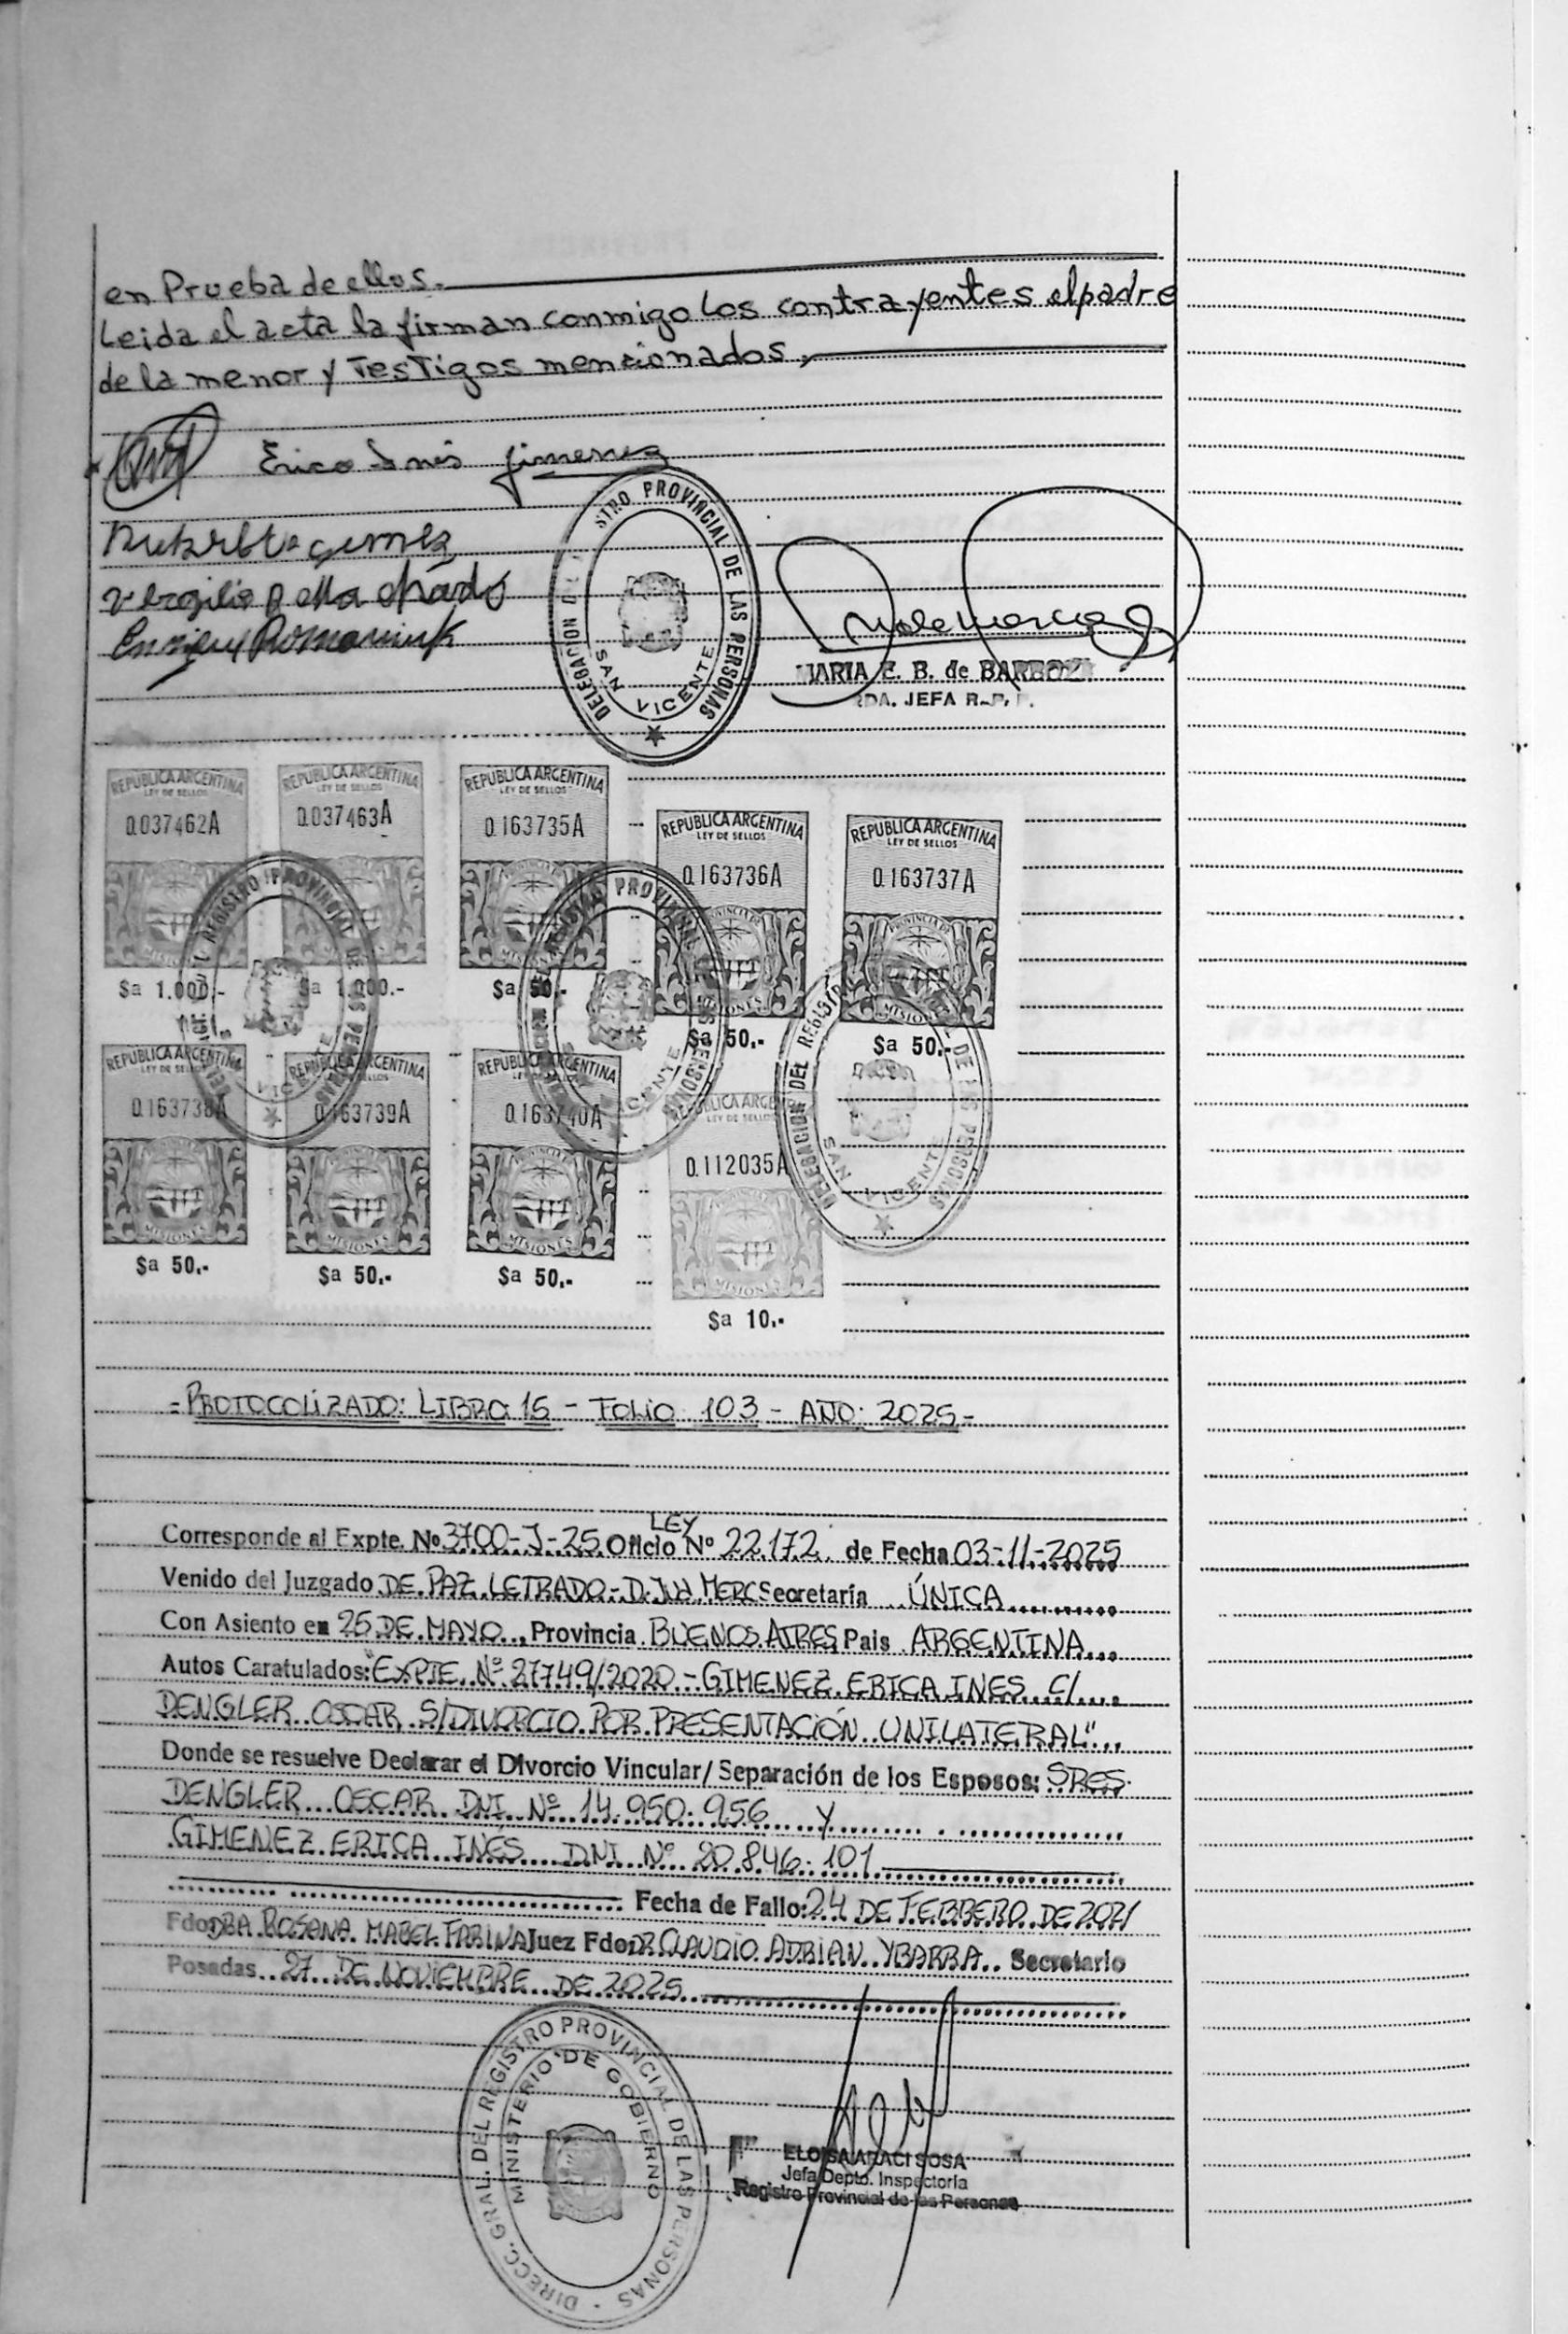 en Prueba de ellos.
Leida el acta la firman conmigo los contrayentes el padre
de la menor y Testigos mencionados,
Erica Inés Jimenez
STRO PROVINCIAL DE LAS PERSONAS
DELEGACION DEL
SAN VICENTE
MARIA E. B. de BARBOZA
JEFA R.P.
REPUBLICA ARGENTINA
LEY DE SELLOS
0.037462A
MISIONES
$a 1.000.-
REPUBLICA ARGENTINA
LEY DE SELLOS
0.037463A
$a 1.000.-
REPUBLICA ARGENTINA
LEY DE SELLOS
0.163735A
MISIONES
$a 50.-
REPUBLICA ARGENTINA
LEY DE SELLOS
0.163736A
MISIONES
$a 50.-
REPUBLICA ARGENTINA
LEY DE SELLOS
0.163737A
$a 50.-
REGISTRO PROVINCIAL DE LAS PERSONAS
DELEGACION DEL REGISTRO
SAN VICENTE
REPUBLICA ARGENTINA
LEY DE SELLOS
0.163738A
MISIONES
$a 50.-
REPUBLICA ARGENTINA
0.163739A
MISIONES
$a 50.-
REPUBLICA ARGENTINA
0.163740A
MISIONES
$a 50.-
LEY DE SELLOS
0.112035A
MISIONES
$a 10.-
- PROTOCOLIZADO: LIBRO 15 - FOLIO 103 - AÑO: 2025 -
LEY
Corresponde al Expte. Nº 3700-J-25 Oficio Nº 22.172 de Fecha 03-11-2025
Venido del Juzgado DE PAZ LETRADO - Secretaría ÚNICA
Con Asiento en 25 DE MAYO, Provincia BUENOS AIRES Pais ARGENTINA
Autos Caratulados: "EXPTE. Nº 27749/2020 - GIMENEZ ERICA INES C/
DENGLER OSCAR S/DIVORCIO POR PRESENTACIÓN UNILATERAL"
Donde se resuelve Declarar el Divorcio Vincular/Separación de los Esposos: SRES.
DENGLER OSCAR DNI Nº 14.950.956 y
GIMENEZ ERICA INÉS DNI Nº 20.846.101
Fecha de Fallo: 24 DE FEBRERO DE 2021
Fdo DRA ROSANA MABEL FARINA Juez Fdo DR CLAUDIO ADRIAN YBARRA Secretario
Posadas 27 DE NOVIEMBRE DE 2025
DIRECC. GRAL. DEL REGISTRO PROVINCIAL DE LAS PERSONAS
MINISTERIO DE GOBIERNO
ELOISA ARACI SOSA
Jefa Depto. Inspectoria
Registro Provincial de las Personas